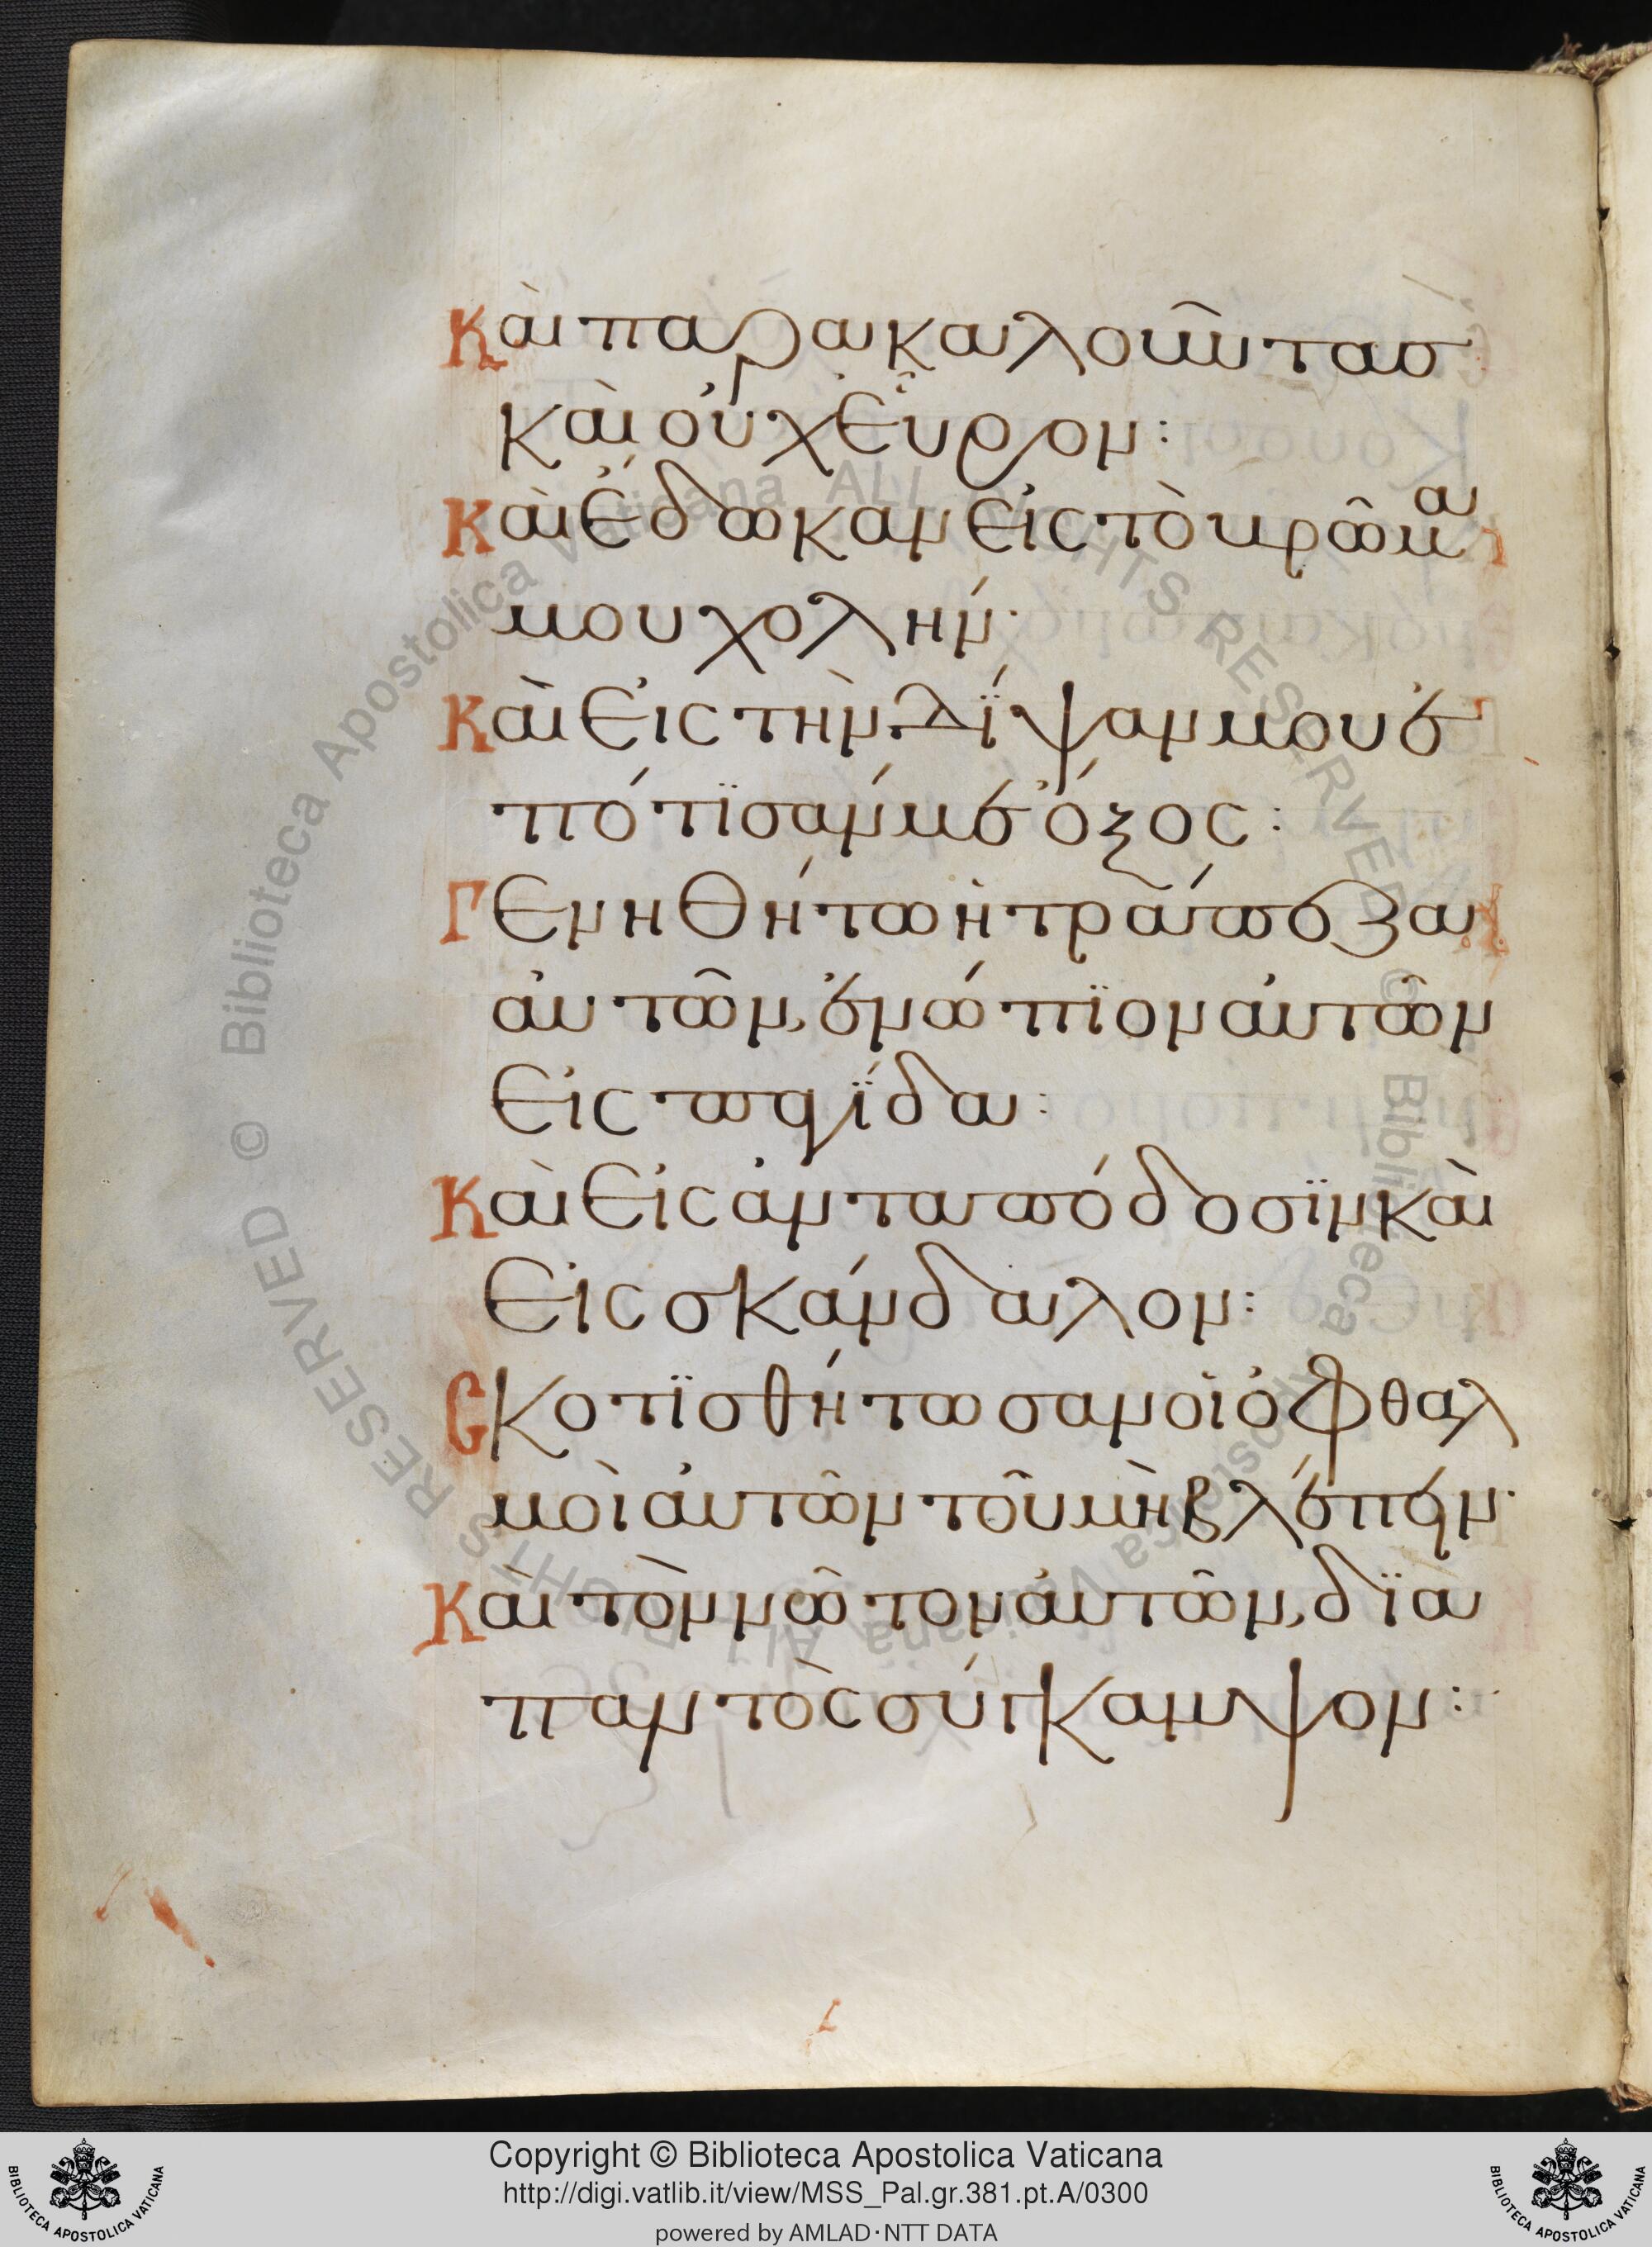 Καὶ παρακαλοῦντας
καὶ οὐχ εὗρον:
Καὶ ἔδωκαν εἰς τὸ βρῶμα
μου χολήν·
Καὶ εἰς τὴν δίψαν μου ἐ
πότϊσάν με ὄξος:
Γενηθήτω ἡ τράπεζα
αὐτῶν, ἐνώπϊον αὐτῶν
εἰς παγΐδα:
Καὶ εἰς ἀνταπόδοσϊν καὶ
εἰς σκάνδαλον:
Σκοτϊσθήτωσαν οἱ ὀφθαλ
μοὶ αὐτῶν τοῦ μὴ βλέπειν·
Καὶ τὸν νῶτον αὐτῶν, δϊα
παντὸς σύγκαμψον:
© Biblioteca Apostolica Vaticana ALL RIGHTS RESERVED
© Biblioteca Apostolica Vaticana ALL RIGHTS RESERVED
Copyright © Biblioteca Apostolica Vaticana
http://digi.vatlib.it/view/MSS_Pal.gr.381.pt.A/0300
powered by AMLAD·NTT DATA
BIBLIOTECA APOSTOLICA VATICANA
BIBLIOTECA APOSTOLICA VATICANA